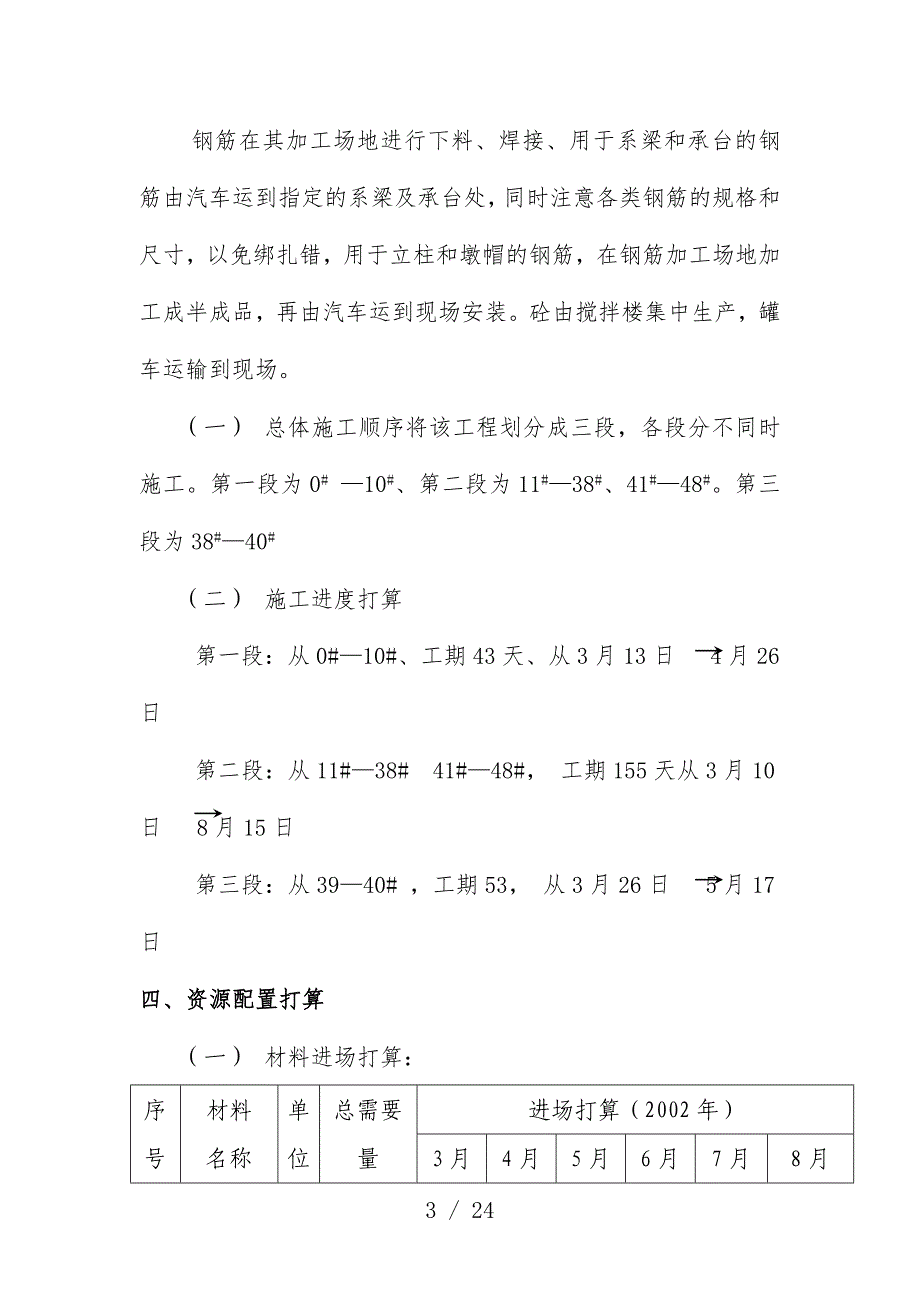 钢筋在其加工场地进行下料、焊接、用于系梁和承台的钢
筋由汽车运到指定的系梁及承台处，同时注意各类钢筋的规格和
尺寸，以免绑扎错，用于立柱和墩帽的钢筋，在钢筋加工场地加
工成半成品，再由汽车运到现场安装。砼由搅拌楼集中生产，罐
车运输到现场。
（一） 总体施工顺序将该工程划分成三段，各段分不同时
施工。第一段为0# —10#、第二段为11#—38#、41#—48#。第三
段为38#—40#
（二） 施工进度打算
第一段：从0#—10#、工期43天、从3月13日 → 4月26
日
第二段：从11#—38# 41#—48#， 工期155天从3月10
日 → 8月15日
第三段：从39—40# ，工期53， 从3月26日 → 5月17
日
四、资源配置打算
（一） 材料进场打算：
序号 材料名称 单位 总需要量 进场打算（2002年）
3月 4月 5月 6月 7月 8月
3 / 24